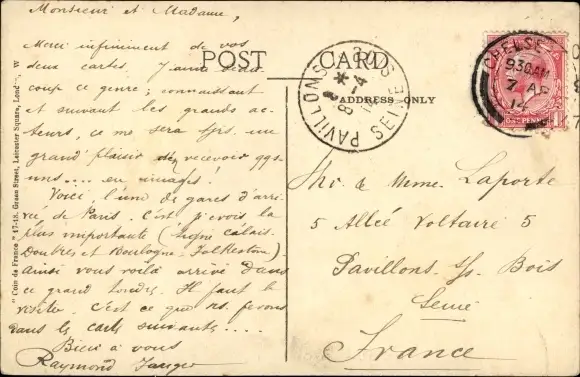 Monsieur et Madame,
Merci infiniment de vos
deux cartes. J'aime beau-
coup ce genre; connaissant
et suivant les grands ac-
teurs, ce me sera tjrs. un
grand plaisir d'en recevoir qqs-
uns.... en images!
Voici, l'une de gares d'arri-
vée, de Paris. C'est je crois la
plus importante (ligne Calais-
Douvres et Boulogne-Folkestone)
ainsi vous voilà arrivé dans
ce grand Londres. Il faut le
visiter. C'est ce que ns. ferons
dans les cartes suivantes....
Bien à vous
Raymond
"Coin de France" 17-18, Green Street, Leicester Square, London, W
POST CARD
ADDRESS ONLY
PAVILLONS S BOIS
SEINE
8 -4
CHELSE
930AM
7 AP
14
ONE PENNY
Mr. & Mme. Laporte
5 Allée Voltaire 5
Pavillons. ss. Bois
Seine
France